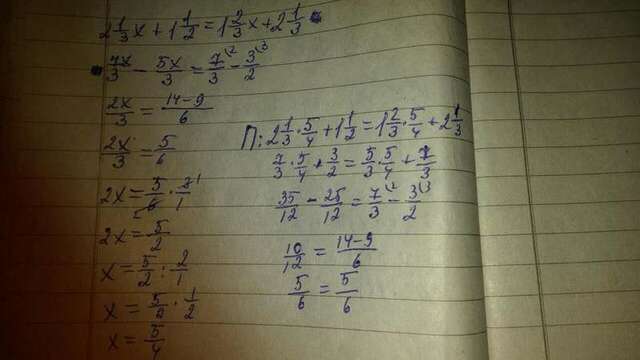 2 1/3 x + 1 1/2 = 1 2/3 x + 2 1/3
7x/3 - 5x/3 = 7/3 \2 - 3/2 \3
2x/3 = (14-9)/6
2x/3 = 5/6
2x = 5/6 · 3/1
2x = 5/2
x = 5/2 : 2/1
x = 5/2 · 1/2
x = 5/4
П: 2 1/3 · 5/4 + 1 1/2 = 1 2/3 · 5/4 + 2 1/3
7/3 · 5/4 + 3/2 = 5/3 · 5/4 + 7/3
35/12 - 25/12 = 7/3 \2 - 3/2 \3
10/12 = (14-9)/6
5/6 = 5/6